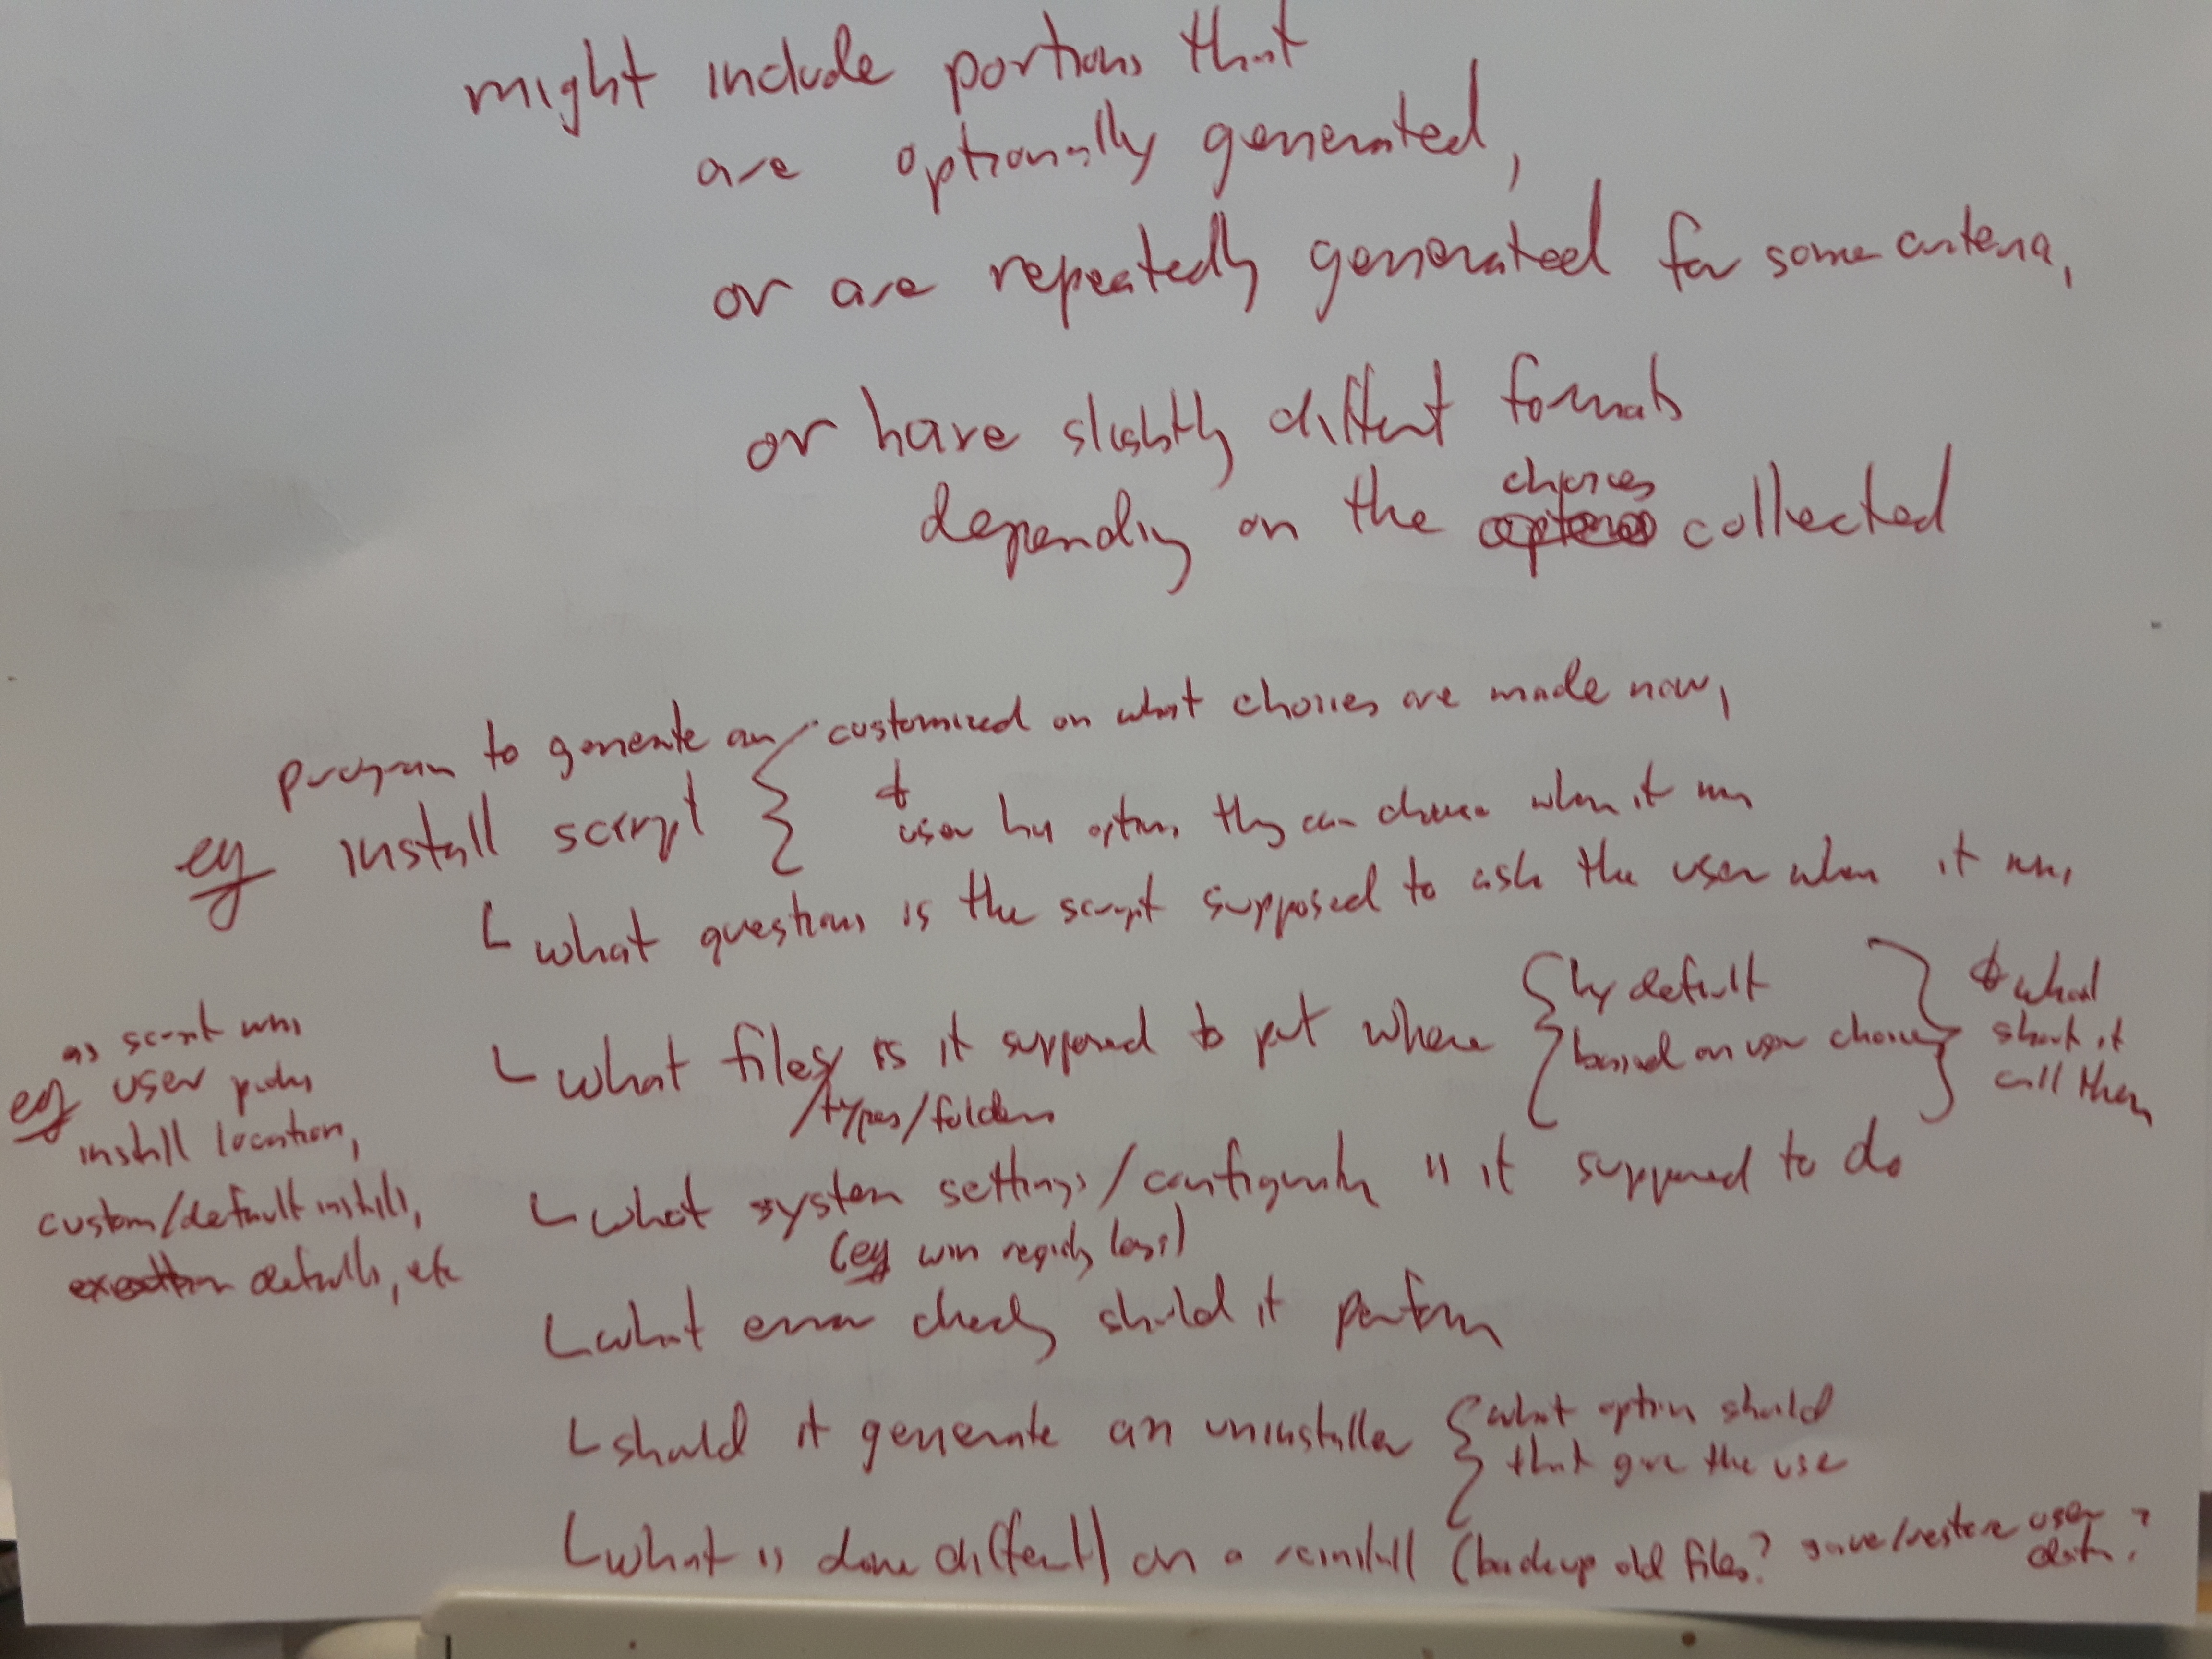 might include portions that
are optionally generated,
or are repeatedly generated for some criteria,
or have slightly diffent formats
choices
depending on the options collected
program to generate an
customized on what choices are made now,
eg install script
&
user has options they can choose when it runs
what questions is the script supposed to ask the user when it runs
what files is it supposed to put where
/types/folders
by default
based on user choices
& what
should it
call them
as script runs
eg user picks
install location,
custom/default installs,
defaults, etc
what system settings/configuration is it supposed to do
(eg win registry loss)
what error checks should it perform
should it generate an uninstaller
what options should
that give the use
what is done differently on a reinstall (backup old files? save/restore user data?